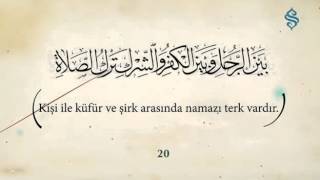 بَيْنَ الرَّجُلِ وَبَيْنَ الْكُفْرِ وَالشِّرْكِ تَرْكُ الصَّلَاةِ
Kişi ile küfür ve şirk arasında namazı terk vardır.
20